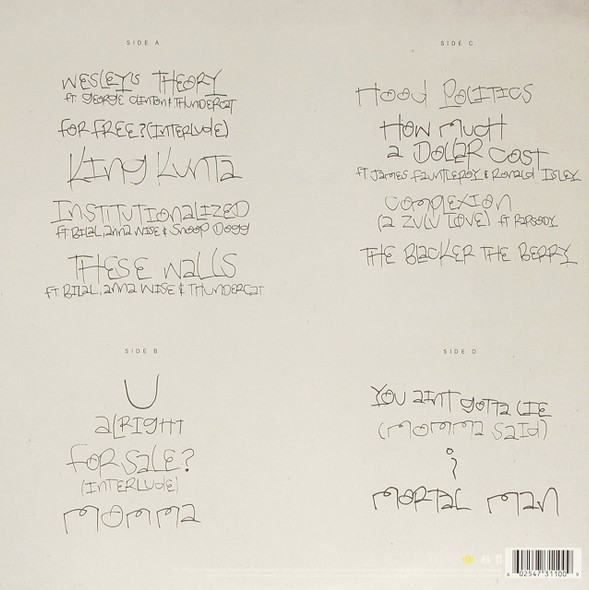 SIDE A
WESLEY'S THEORY
FT GEORGE CLINTON & THUNDERCAT
FOR FREE? (INTERLUDE)
KING KUNTA
INSTITUTIONALIZED
FT BILAL, ANNA WISE & SNOOP DOGG
THESE WALLS
FT BILAL, ANNA WISE & THUNDERCAT
SIDE B
U
ALRIGHT
FOR SALE?
(INTERLUDE)
MOMMA
SIDE C
HOOD POLITICS
HOW MUCH
A DOLLAR COST
FT JAMES FAUNTLEROY & RONALD ISLEY
COMPLEXION
(A ZULU LOVE) FT RAPSODY
THE BLACKER THE BERRY
SIDE D
YOU AINT GOTTA LIE
(MOMMA SAID)
i
MORTAL MAN
6 02547 31100 9